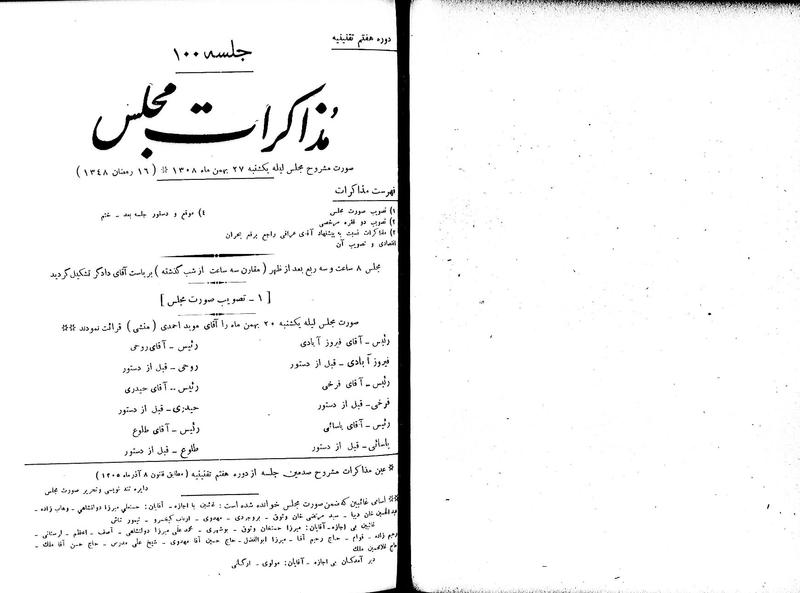 دوره هفتم تقنینیه
جلسه ۱۰۰
مذاکرات مجلس
صورت مشروح مجلس لیله یکشنبه ۲۷ بهمن ماه ۱۳۰۸ * ( ۱۶ رمضان ۱۳۴۸ )
فهرست مذاکرات
۱) تصویب صورت مجلس
۲) تصویب دو فقره مرخصی
۳) مذاکرات نسبت به پیشنهاد آقای عراقی راجع برفع بحران
اقتصادی و تصویب آن
۴) موقع و دستور جلسه بعد - ختم
مجلس ۸ ساعت و سه ربع بعد از ظهر ( مقارن سه ساعت از شب گذشته ) بریاست آقای دادگر تشکیل گردید
[ ۱ - تصویب صورت مجلس ]
صورت مجلس لیله یکشنبه ۲۰ بهمن ماه را آقای موید احمدی ( منشی ) قرائت نمودند **
رئیس - آقای فیروز آبادی
فیروز آبادی - قبل از دستور
رئیس - آقای فرخی
فرخی - قبل از دستور
رئیس - آقای یاسائی
یاسائی - قبل از دستور
رئیس - آقای روحی
روحی - قبل از دستور
رئیس - آقای حیدری
حیدری - قبل از دستور
رئیس - آقای طلوع
طلوع - قبل از دستور
* عین مذاکرات مشروح صدمین جلسه از دوره هفتم تقنینیه ( مطابق قانون ۸ آذر ماه ۱۳۰۵ )
دایره تند نویسی و تحریر صورت مجلس
** اسامی غائبین که ضمن صورت مجلس خوانده شده است : غائبین با اجازه - آقایان : حسنعلی میرزا دولتشاهی - وهاب زاده -
عبدالحسین خان دیبا - سید مرتضی خان وثوق - بروجردی - مهدوی - ارباب کیخسرو - تیمور تاش
غائبین بی اجازه - آقایان : میرزا حسنخان وثوق - بوشهری - محمد علی میرزا دولتشاهی - آصف - اعظم - لرستانی -
رحیم زاده - قوام - حاج رحیم آقا - میرزا ابوالفضل - حاج حسین آقا مهدوی - شیخ علی مدرس - حاج حسن آقا ملک -
حاج غلامحسین ملک
دیر آمدگان بی اجازه - آقایان : مولوی - ارگانی